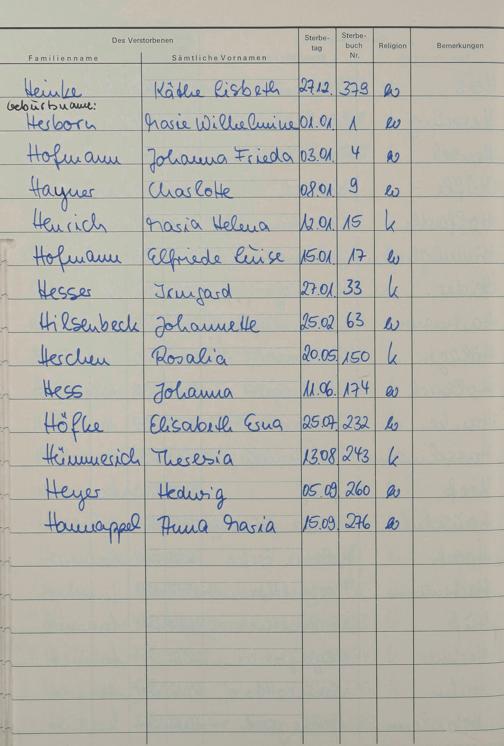 Des Verstorbenen
Familienname Sämtliche Vornamen Sterbe-tag Sterbe-buch Nr. Religion Bemerkungen
Heinke Käthe Lisbeth 27.12. 379 ev
Geburtsname:
Hesborn Maria Wilhelmine 01.01. 1 ev
Hofmann Johanna Frieda 03.01. 4 ev
Hayner Charlotte 08.01. 9 ev
Henrich Maria Helena 12.01. 15 k
Hofmann Elfriede Luise 15.01. 17 ev
Hesser Irmgard 27.01. 33 k
Hilsenbeck Johannette 25.02 63 ev
Herchen Rosalia 20.05. 150 k
Hess Johanna 11.06. 174 ev
Höfke Elisabeth Erna 25.07. 232 ev
Hümmerich Theresia 13.08 243 k
Heyer Hedwig 05.09. 260 ev
Hannappel Anna Maria 15.09. 276 ev